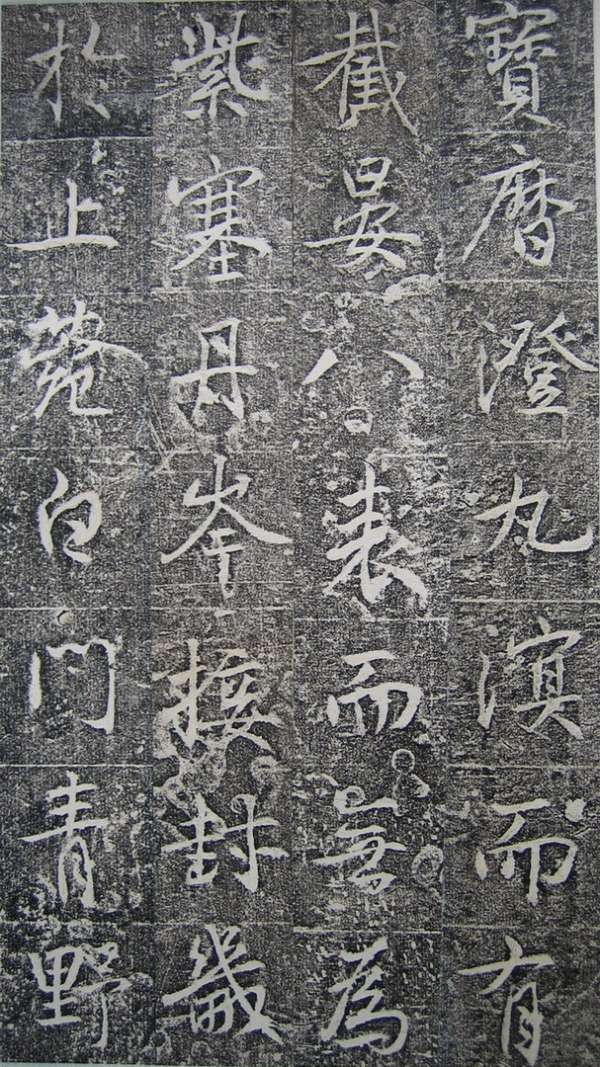 寶曆澄九溟而有
截晏八表而無為
紫塞丹岑接封畿
於上苑白門青野